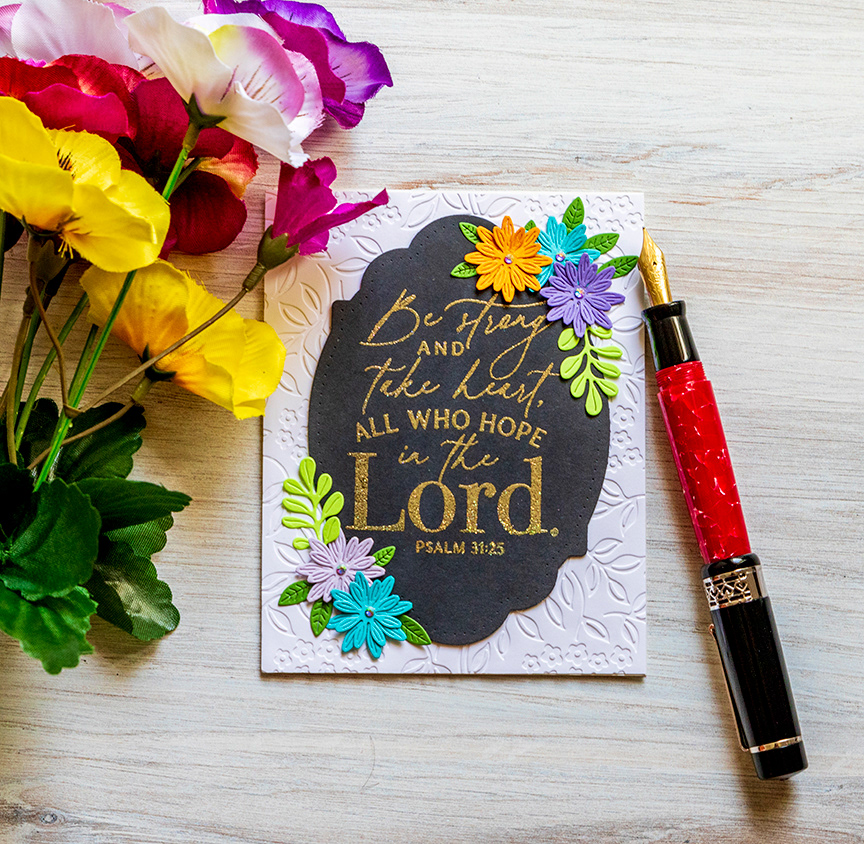 Be strong
AND
take heart,
ALL WHO HOPE
in the
Lord.
PSALM 31:25